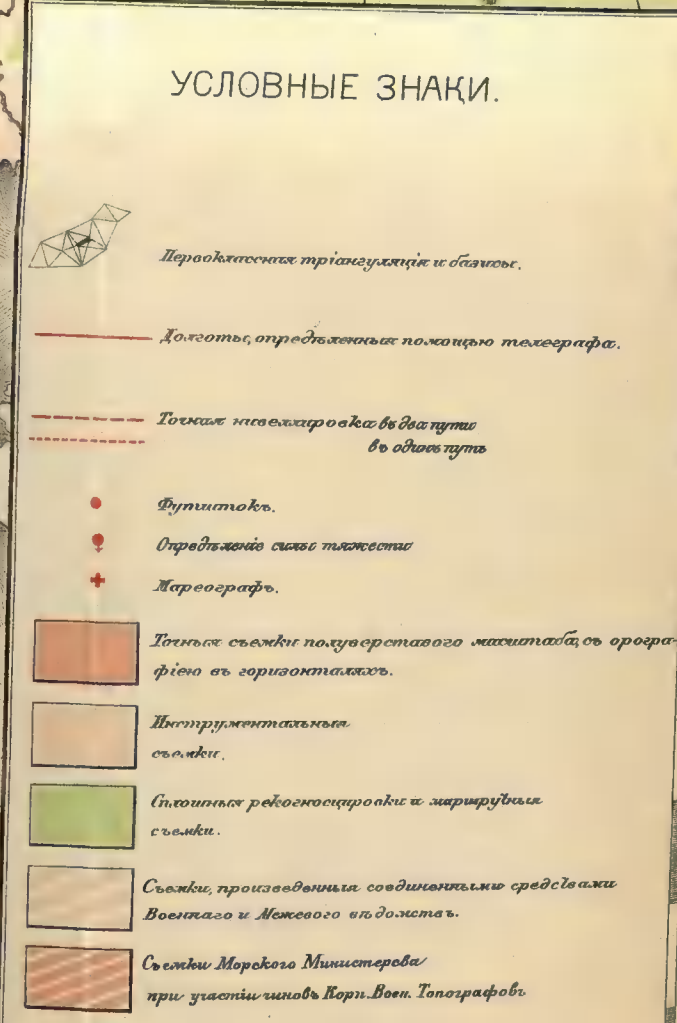 УСЛОВНЫЕ ЗНАКИ.
Первоклассная тріангуляція и базисы.
Долготы, опредѣленныя помощью телеграфа.
Точная нивеллировка въ два пути
въ одинъ путь
Футштокъ.
Опредѣленіе силы тяжести
Мареографъ.
Точныя съемки полуверстоваго масштаба, съ орогра-
фіею въ горизонталяхъ.
Инструментальныя
съемки.
Сплошныя рекогносцировки и маршрутныя
съемки.
Съемки, произведенныя соединенными средствами
Военнаго и Межевого вѣдомствъ.
Съемки Морского Министерства
при участіи чиновъ Корп. Воен. Топографовъ